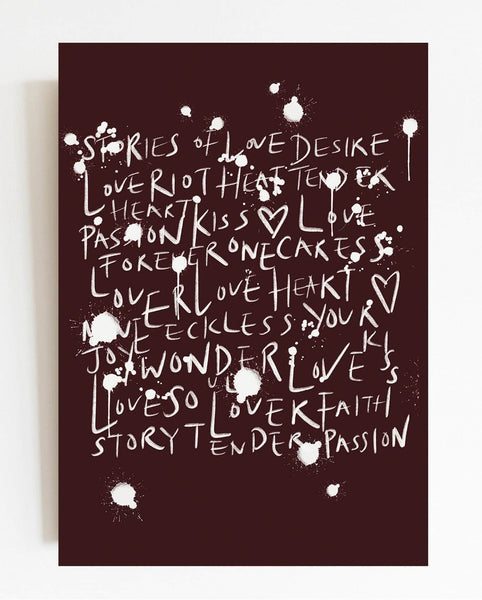 STORIES OF LOVE DESIRE
LOVE RIOT HEAT TENDER
HEART KISS ♡ LOVE
PASSION
FOREVER ONE CARESS
LOVER LOVE HEART ♡
RECKLESS YOUR
JOYE WONDER LOVE KISS
LOVE SO LOVER FAITH
STORY TENDER PASSION